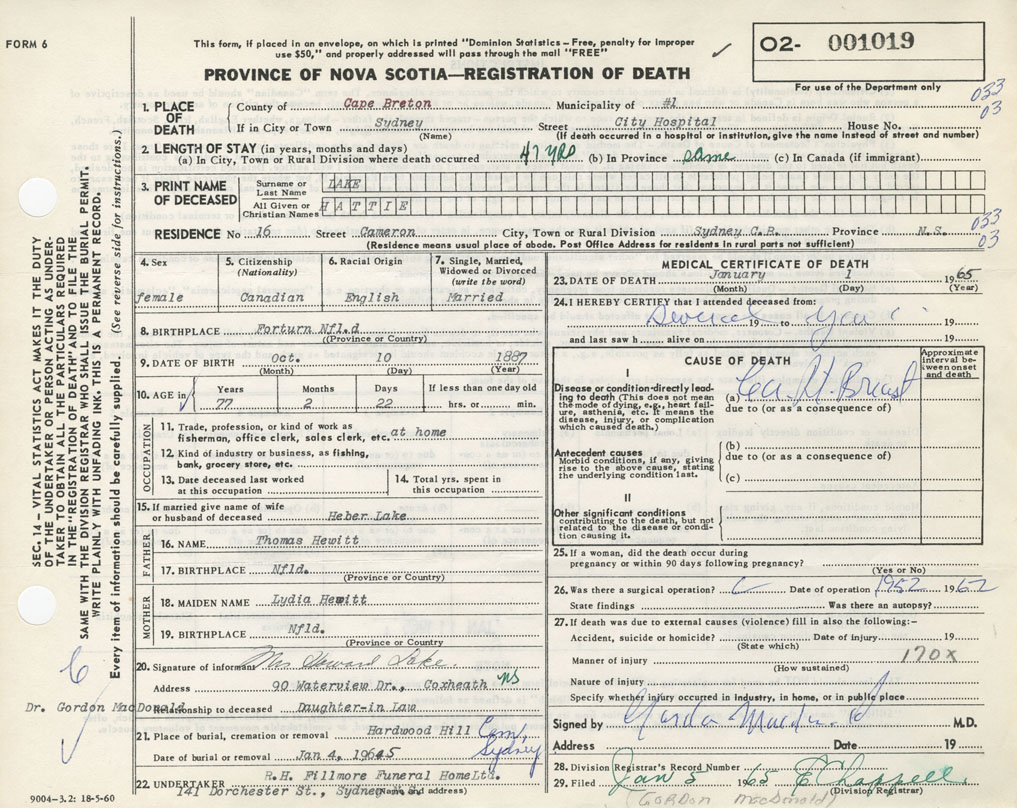 FORM 6
This form, if placed in an envelope, on which is printed "Dominion Statistics – Free, penalty for improper
use $50," and properly addressed will pass through the mail "FREE"
PROVINCE OF NOVA SCOTIA—REGISTRATION OF DEATH
02- 001019
For use of the Department only
033
03
1. PLACE OF DEATH
County of Cape Breton Municipality of #1
If in City or Town Sydney Street City Hospital House No.
(Name) (If death occurred in a hospital or institution, give the name instead of street and number)
2. LENGTH OF STAY (in years, months and days)
(a) In City, Town or Rural Division where death occurred 47 yrs (b) In Province same (c) In Canada (if immigrant)
3. PRINT NAME OF DECEASED
Surname or Last Name LAKE
All Given or Christian Names HATTIE
033
03
RESIDENCE No 16 Street Cameron City, Town or Rural Division Sydney C.B. Province N.S.
(Residence means usual place of abode. Post Office Address for residents in rural parts not sufficient)
4. Sex
female
5. Citizenship
(Nationality)
Canadian
6. Racial Origin
English
7. Single, Married,
Widowed or Divorced
(write the word)
Married
8. BIRTHPLACE Forturn Nfl.d
(Province or Country)
9. DATE OF BIRTH Oct. 10 1887
(Month) (Day) (Year)
10. AGE in
Years Months Days If less than one day old
77 2 22 hrs. or min.
OCCUPATION
11. Trade, profession, or kind of work as
fisherman, office clerk, sales clerk, etc. at home
12. Kind of industry or business, as fishing,
bank, grocery store, etc.
13. Date deceased last worked
at this occupation
14. Total yrs. spent in
this occupation
15. If married give name of wife
or husband of deceased Heber Lake
FATHER
16. NAME Thomas Hewitt
17. BIRTHPLACE Nfld.
(Province or Country)
MOTHER
18. MAIDEN NAME Lydia Hewitt
19. BIRTHPLACE Nfld.
(Province or Country)
20. Signature of informant Mrs Howard Lake.
Address 90 Waterview Dr., Coxheath NS
Dr. Gordon MacDonald
Relationship to deceased Daughter-in Law
21. Place of burial, cremation or removal Hardwood Hill Cem, Sydney
Date of burial or removal Jan 4, 1965
22. UNDERTAKER R.H. Fillmore Funeral HomeLtd.
141 Dorchester St., Sydney
(Name and address)
MEDICAL CERTIFICATE OF DEATH
23. DATE OF DEATH January 1 1965
(Month) (Day) (Year)
24. I HEREBY CERTIFY that I attended deceased from:
Several 19 to years 19
and last saw h alive on 19
CAUSE OF DEATH
Approximate interval between onset and death
I
Disease or condition directly leading to death (This does not mean
the mode of dying, e.g., heart failure, asthenia, etc. It means the
disease, injury, or complication
which caused death.)
(a) Ca. of Breast
due to (or as a consequence of)
Antecedent causes
Morbid conditions, if any, giving
rise to the above cause, stating
the underlying condition last.
(b)
due to (or as a consequence of)
(c)
II
Other significant conditions
contributing to the death, but not
related to the disease or condition causing it.
25. If a woman, did the death occur during
pregnancy or within 90 days following pregnancy?
(Yes or No)
26. Was there a surgical operation? Date of operation 1952 1962
State findings Was there an autopsy?
27. If death was due to external causes (violence) fill in also the following:–
Accident, suicide or homicide? Date of injury 19
(State which)
Manner of injury 170X
(How sustained)
Nature of injury
Specify whether injury occurred in industry, in home, or in public place
Signed by M.D.
Address Date 19
28. Division Registrar's Record Number
29. Filed Jan 5 1965 E Chappell
(Division Registrar)
(GORDON MacDONALD)
SEC. 14 – VITAL STATISTICS ACT MAKES IT THE DUTY
OF THE UNDERTAKER OR PERSON ACTING AS UNDERTAKER
TO OBTAIN ALL THE PARTICULARS REQUIRED
IN THE "REGISTRATION OF DEATH" AND FILE THE
SAME WITH THE DIVISION REGISTRAR WHO SHALL ISSUE THE BURIAL PERMIT.
WRITE PLAINLY WITH UNFADING INK. THIS IS A PERMANENT RECORD.
Every item of information should be carefully supplied. (See reverse side for instructions.)
6
9004–3.2: 18-5-60